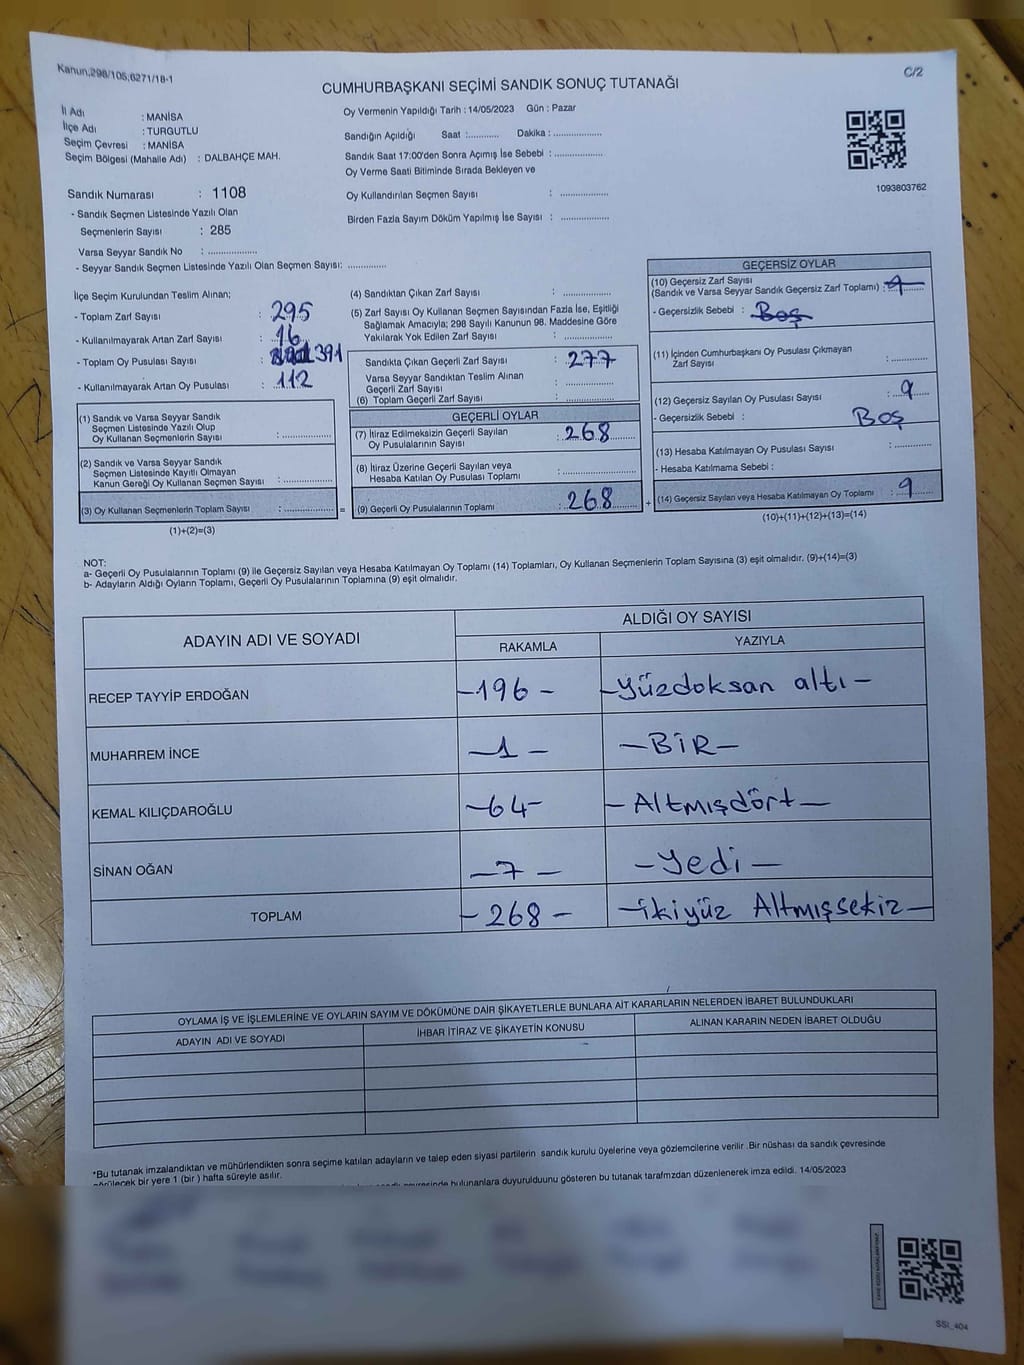 Kanun;298/105;6271/18-1
C/2
CUMHURBAŞKANI SEÇİMİ SANDIK SONUÇ TUTANAĞI
İl Adı : MANİSA
İlçe Adı : TURGUTLU
Seçim Çevresi : MANİSA
Seçim Bölgesi (Mahalle Adı) : DALBAHÇE MAH.
Oy Vermenin Yapıldığı Tarih : 14/05/2023 Gün : Pazar
Sandığın Açıldığı Saat :........... Dakika : ..................
Sandık Saat 17:00'den Sonra Açımış İse Sebebi : ..................
Oy Verme Saati Bitiminde Sırada Bekleyen ve
Oy Kullandırılan Seçmen Sayısı : ..................
Birden Fazla Sayım Döküm Yapılmış İse Sayısı : ..................
1093803762
Sandık Numarası : 1108
- Sandık Seçmen Listesinde Yazılı Olan
Seçmenlerin Sayısı : 285
Varsa Seyyar Sandık No : ..................
- Seyyar Sandık Seçmen Listesinde Yazılı Olan Seçmen Sayısı: ..............
İlçe Seçim Kurulundan Teslim Alınan;
- Toplam Zarf Sayısı : 295
- Kullanılmayarak Artan Zarf Sayısı : 16
- Toplam Oy Pusulası Sayısı : 391
- Kullanılmayarak Artan Oy Pusulası : 112
(1) Sandık ve Varsa Seyyar Sandık
Seçmen Listesinde Yazılı Olup
Oy Kullanan Seçmenlerin Sayısı : ..................
(2) Sandık ve Varsa Seyyar Sandık
Seçmen Listesinde Kayıtlı Olmayan
Kanun Gereği Oy Kullanan Seçmen Sayısı : ..................
(3) Oy Kullanan Seçmenlerin Toplam Sayısı : ..................
(1)+(2)=(3)
=
(4) Sandıktan Çıkan Zarf Sayısı : ..................
(5) Zarf Sayısı Oy Kullanan Seçmen Sayısından Fazla İse, Eşitliği
Sağlamak Amacıyla; 298 Sayılı Kanunun 98. Maddesine Göre
Yakılarak Yok Edilen Zarf Sayısı : ..................
Sandıkta Çıkan Geçerli Zarf Sayısı : 277
Varsa Seyyar Sandıktan Teslim Alınan
Geçerli Zarf Sayısı : ..................
(6) Toplam Geçerli Zarf Sayısı : ..................
GEÇERLİ OYLAR
(7) İtiraz Edilmeksizin Geçerli Sayılan
Oy Pusulalarının Sayısı : 268
(8) İtiraz Üzerine Geçerli Sayılan veya
Hesaba Katılan Oy Pusulası Toplamı : ..................
(9) Geçerli Oy Pusulalarının Toplamı : 268
+
GEÇERSİZ OYLAR
(10) Geçersiz Zarf Sayısı
(Sandık ve Varsa Seyyar Sandık Geçersiz Zarf Toplamı) : 9
- Geçersizlik Sebebi : Boş
(11) İçinden Cumhurbaşkanı Oy Pusulası Çıkmayan
Zarf Sayısı : ..............
(12) Geçersiz Sayılan Oy Pusulası Sayısı : 9
- Geçersizlik Sebebi : Boş
(13) Hesaba Katılmayan Oy Pusulası Sayısı : ..............
- Hesaba Katılmama Sebebi :
(14) Geçersiz Sayılan veya Hesaba Katılmayan Oy Toplamı : 9
(10)+(11)+(12)+(13)=(14)
NOT:
a- Geçerli Oy Pusulalarının Toplamı (9) ile Geçersiz Sayılan veya Hesaba Katılmayan Oy Toplamı (14) Toplamları, Oy Kullanan Seçmenlerin Toplam Sayısına (3) eşit olmalıdır. (9)+(14)=(3)
b- Adayların Aldığı Oyların Toplamı, Geçerli Oy Pusulalarının Toplamına (9) eşit olmalıdır.
ADAYIN ADI VE SOYADI
ALDIĞI OY SAYISI
RAKAMLA YAZIYLA
RECEP TAYYİP ERDOĞAN -196- -Yüzdoksan altı-
MUHARREM İNCE -1- -BİR-
KEMAL KILIÇDAROĞLU -64- -Altmışdört-
SİNAN OĞAN -7- -Yedi-
TOPLAM -268- -ikiyüz Altmışsekiz-
OYLAMA İŞ VE İŞLEMLERİNE VE OYLARIN SAYIM VE DÖKÜMÜNE DAİR ŞİKAYETLERLE BUNLARA AİT KARARLARIN NELERDEN İBARET BULUNDUKLARI
ADAYIN ADI VE SOYADI İHBAR İTİRAZ VE ŞİKAYETİN KONUSU ALINAN KARARIN NEDEN İBARET OLDUĞU
*Bu tutanak imzalandıktan ve mühürlendikten sonra seçime katılan adayların ve talep eden siyasi partilerin sandık kurulu üyelerine veya gözlemcilerine verilir .Bir nüshası da sandık çevresinde
görülecek bir yere 1 (bir ) hafta süreyle asılır.
bulunanlara duyurulduunu gösteren bu tutanak tarafmzdan düzenlenerek imza edildi. 14/05/2023
SSI_404